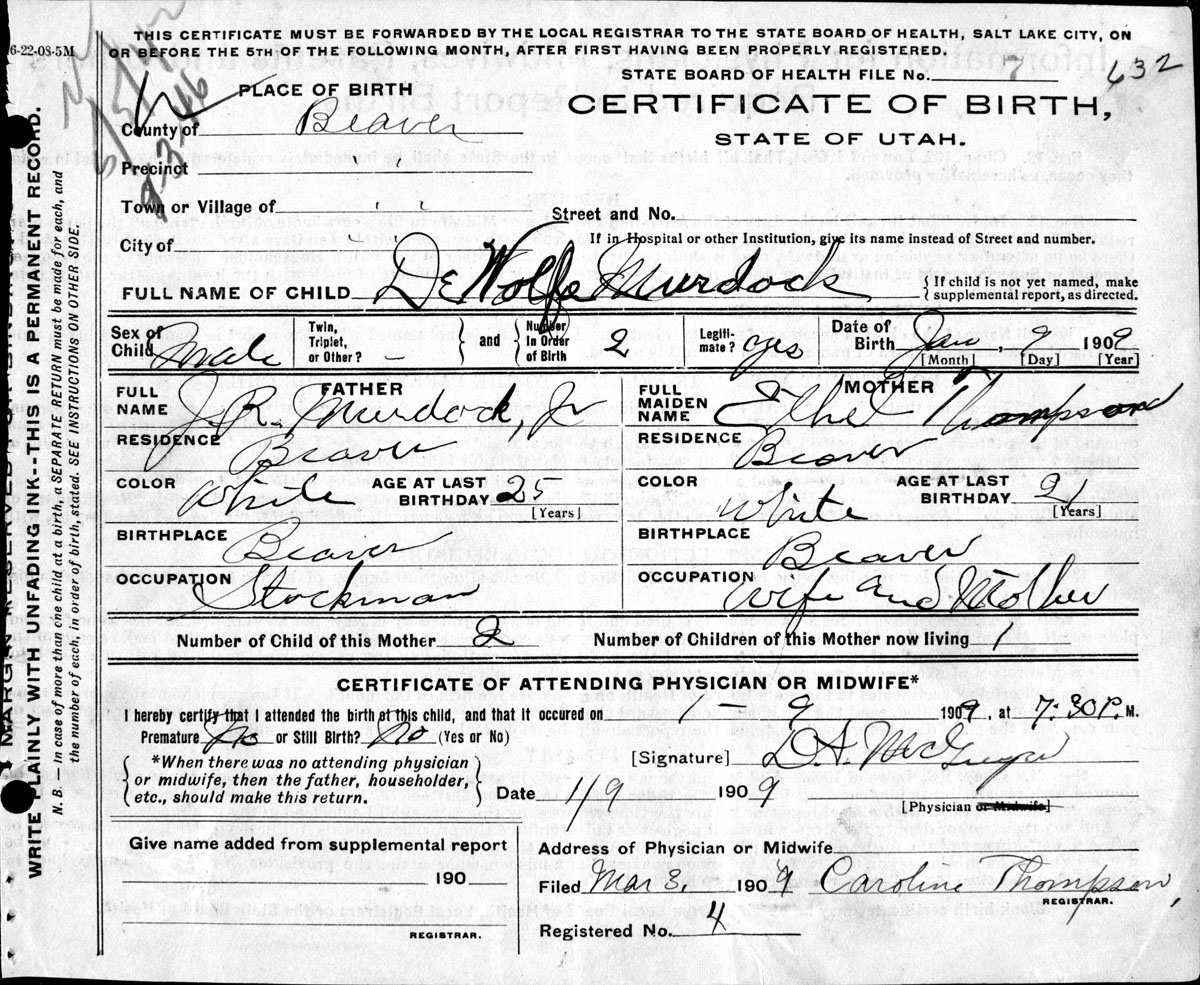 6-22-08-5M
THIS CERTIFICATE MUST BE FORWARDED BY THE LOCAL REGISTRAR TO THE STATE BOARD OF HEALTH, SALT LAKE CITY, ON
OR BEFORE THE 5TH OF THE FOLLOWING MONTH, AFTER FIRST HAVING BEEN PROPERLY REGISTERED.
STATE BOARD OF HEALTH FILE No. 7 632
PLACE OF BIRTH
CERTIFICATE OF BIRTH,
County of Beaver
STATE OF UTAH.
Precinct "
Town or Village of " Street and No.
City of " If in Hospital or other Institution, give its name instead of Street and number.
FULL NAME OF CHILD De Wolfe Murdock { If child is not yet named, make supplemental report, as directed.
Sex of Child Male Twin, Triplet, or Other? – } and { Number In Order of Birth 2 Legiti- mate? yes Date of Birth Jan 9 1909
[Month] [Day] [Year]
FATHER MOTHER
FULL NAME J. R. Murdock, Jr FULL MAIDEN NAME Ethel Thompson
RESIDENCE Beaver RESIDENCE Beaver
COLOR White AGE AT LAST BIRTHDAY 25 [Years] COLOR White AGE AT LAST BIRTHDAY 21 [Years]
BIRTHPLACE Beaver BIRTHPLACE Beaver
OCCUPATION Stockman OCCUPATION Wife and Mother
Number of Child of this Mother 2 Number of Children of this Mother now living 1
CERTIFICATE OF ATTENDING PHYSICIAN OR MIDWIFE*
I hereby certify that I attended the birth of this child, and that it occured on 1 – 9 1909, at 7:30 P. M.
Premature? No or Still Birth? No (Yes or No)
[Signature] D. A. McGregor
*When there was no attending physician
or midwife, then the father, householder,
etc., should make this return.
Date 1/9 1909
[Physician or Midwife]
Give name added from supplemental report
190
REGISTRAR.
Address of Physician or Midwife
Filed Mar 3, 1909 Caroline Thompson,
REGISTRAR.
Registered No. 4
WRITE PLAINLY WITH UNFADING INK--THIS IS A PERMANENT RECORD.
N. B. — In case of more than one child at a birth, a SEPARATE RETURN must be made for each, and
the number of each, in order of birth, stated. SEE INSTRUCTIONS ON OTHER SIDE.